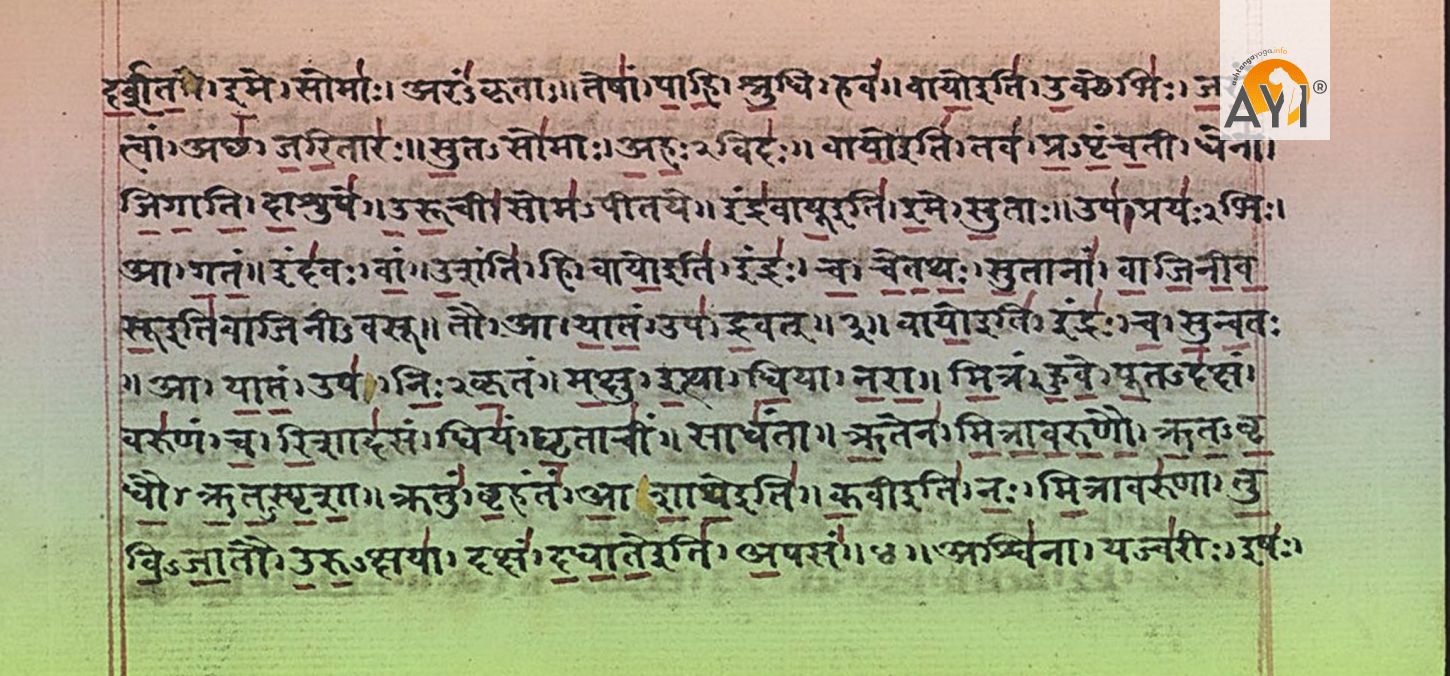 इमे। सोमाः। अरंऽकृताः॥ तेषां। पाहि। श्रुधि। हवं॥ वायोइति। उक्थेभिः।
त्वां। अच्छ। जरितारः॥ सुतऽसोमाः। अहःऽविदः॥ वायोइति। तव। प्रऽपृंचती। धेना।
जिगाति। दाशुषे॥ उरूची। सोमऽपीतये॥ इंद्रवायूइति। इमे। सुताः॥ उप। प्रयःऽभिः।
आ। गतं॥ इंदवः। वां॥ उशंति। हि। वायोइति। इंद्रः। च। चेतथः। सुतानां। वाजिनीव
सूइतिवाजिनीऽवसू॥ तौ। आ। यातं। उप। द्रवत्॥ ३॥ वायोइति। इंद्रः। च। सुन्वतः
॥ आ। यातं। उप। निःऽकृतं॥ मक्षु। इत्था। धिया। नरा॥ मित्रं। हुवे। पूतऽदक्षं।
वरुणं। च। रिशादसं। धियं। घृताचीं॥ साधंता॥ ऋतेन। मित्रावरुणौ। ऋतऽवृ
धौ। ऋतऽस्पृशा॥ क्रतुं। बृहंतं। आ। शाथेइति॥ कवीइति। नः। मित्रावरुणा। तु
विऽजातौ। उरुऽक्षया। दक्षं। दधातेइति। अपसं॥ ४॥ अश्विना। यज्वरीः। इषः।
ashtangayoga.info
AYI®